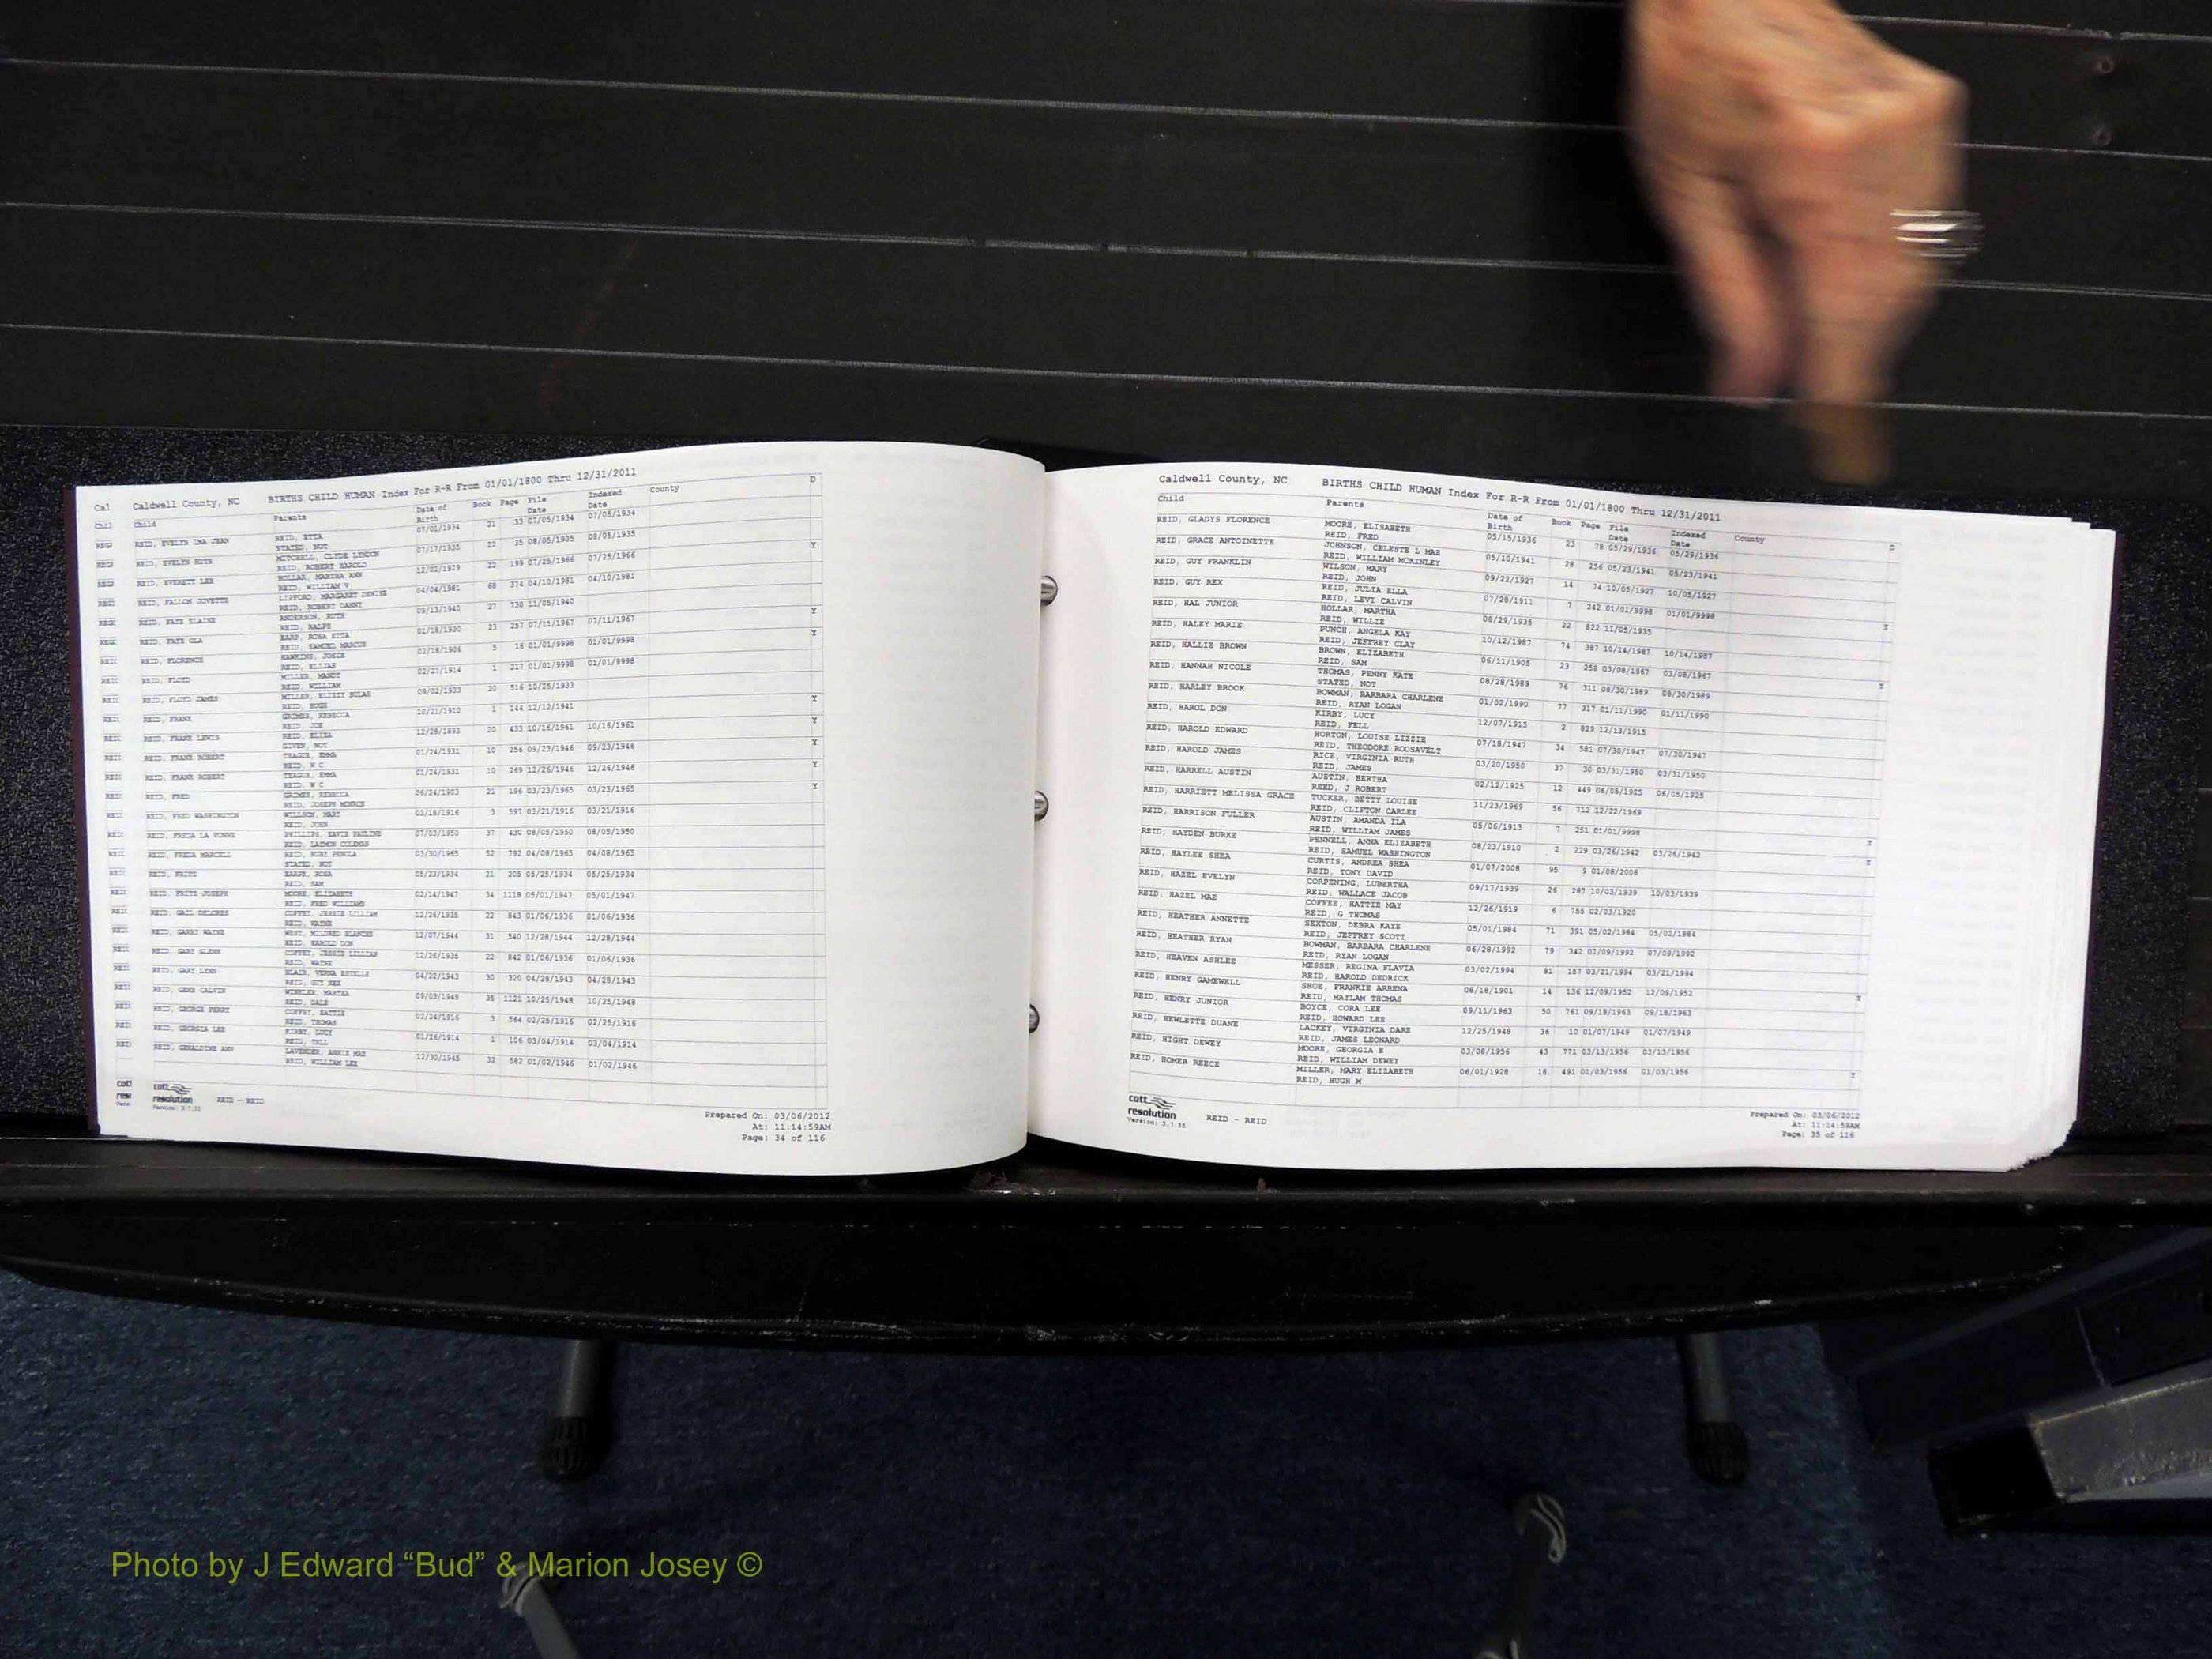 Caldwell County, NC BIRTHS CHILD HUMAN Index For R-R From 01/01/1800 Thru 12/31/2011
Child Parents Date of Birth Book Page File Date Indexed Date County D
REID, EVELYN IMA JEAN REID, ETTA 07/01/1934 21 33 07/05/1934 07/05/1934
STATED, NOT
REID, EVELYN RUTH MITCHELL, CLYDE LINDON 07/17/1935 22 35 08/05/1935 08/05/1935
REID, ROBERT HAROLD
REID, EVERETT LEE HOLLAR, MARTHA ANN 12/02/1929 22 199 07/25/1966 07/25/1966 Y
REID, WILLIAM V
REID, FALLON JOVETTE LIPFORD, MARGARET DENISE 04/04/1981 68 374 04/10/1981 04/10/1981
REID, ROBERT DANNY
REID, FAYE ELAINE ANDERSON, RUTH 09/13/1940 27 730 11/05/1940
REID, RALPH
REID, FAYE OLA EARP, ROSA ETTA 01/18/1930 23 257 07/11/1967 07/11/1967 Y
REID, SAMUEL MARCUS
REID, FLORENCE HAWKINS, JOSIE 02/18/1906 5 16 01/01/9998 01/01/9998 Y
REID, ELIJAH
REID, FLOYD MILLER, MANDY 02/27/1914 1 217 01/01/9998 01/01/9998
REID, WILLIAM
REID, FLOYD JAMES MILLER, 09/02/1933 20 516 10/25/1933
REID, HUGH
REID, FRANK GRIMES, REBECCA 10/21/1910 1 144 12/12/1941 Y
REID, JOE
REID, FRANK LEWIS REID, ELIZA 12/28/1893 20 433 10/16/1961 10/16/1961 Y
GIVEN, NOT
REID, FRANK ROBERT TEAGUE, EMMA 01/24/1931 10 256 09/23/1946 09/23/1946 Y
REID, W C
REID, FRANK ROBERT TEAGUE, EMMA 01/24/1931 10 269 12/26/1946 12/26/1946 Y
REID, W C
REID, FRED GRIMES, REBECCA 06/24/1903 21 196 03/23/1965 03/23/1965 Y
REID, JOSEPH MONROE
REID, FRED WASHINGTON WILLSON, MARY 03/18/1916 3 597 03/21/1916 03/21/1916
REID, JOHN
REID, FREDA LA VONNE PHILLIPS, PAULINE 07/03/1950 37 430 08/05/1950 08/05/1950
REID, COLEMAN
REID, FREDA MARCELL REID, RUBY PENOLA 03/30/1965 52 792 04/08/1965 04/08/1965
STATED, NOT
REID, FRITZ EARPE, ROSA 05/23/1934 21 205 05/25/1934 05/25/1934
REID, SAM
REID, FRITZ JOSEPH MOORE, ELIZABETH 02/14/1947 34 1118 05/01/1947 05/01/1947
REID, FRED WILLIAMS
REID, GAIL DELORES COFFEY, JESSIE LILLIAN 12/26/1935 22 843 01/06/1936 01/06/1936
REID, WAYNE
REID, GARRY WAYNE WEST, MILDRED BLANCHE 12/07/1944 31 540 12/28/1944 12/28/1944
REID, HAROLD DON
REID, GARY GLENN COFFEY, JESSIE LILLIAN 12/26/1935 22 842 01/06/1936 01/06/1936
REID, WAYNE
REID, GARY LYNN BLAIR, VERNA ESTELLE 04/22/1943 30 320 04/28/1943 04/28/1943
REID, GUY REX
REID, GENE CALVIN WINKLER, MARTHA 09/03/1948 35 1121 10/25/1948 10/25/1948
REID, DALE
REID, GEORGE PERRY COFFEY, HATTIE 02/24/1916 3 564 02/25/1916 02/25/1916
REID, THOMAS
REID, GEORGIA LEE KIRBY, LUCY 01/26/1914 1 106 03/04/1914 03/04/1914
REID, TELL
REID, GERALDINE ANN LAVENDER, ANNIE MAE 12/30/1945 32 582 01/02/1946 01/02/1946
REID, WILLIAM LEE
cott
resolution REID - REID
Version: 3.7.35
Prepared On: 03/06/2012
At: 11:14:59AM
Page: 34 of 116
Caldwell County, NC BIRTHS CHILD HUMAN Index For R-R From 01/01/1800 Thru 12/31/2011
Child Parents Date of Birth Book Page File Date Indexed Date County D
REID, GLADYS FLORENCE MOORE, ELISABETH 05/15/1936 23 78 05/29/1936 05/29/1936
REID, FRED
REID, GRACE ANTOINETTE JOHNSON, CELESTE L MAE 05/10/1941 28 256 05/23/1941 05/23/1941
REID, WILLIAM MCKINLEY
REID, GUY FRANKLIN WILSON, MARY 09/22/1927 14 74 10/05/1927 10/05/1927
REID, JOHN
REID, GUY REX REID, JULIA ELLA 07/28/1911 7 242 01/01/9998 01/01/9998
REID, LEVI CALVIN
REID, HAL JUNIOR HOLLAR, MARTHA 08/29/1935 22 822 11/05/1935 Y
REID, WILLIE
REID, HALEY MARIE PUNCH, ANGELA KAY 10/12/1987 74 387 10/14/1987 10/14/1987
REID, JEFFREY CLAY
REID, HALLIE BROWN BROWN, ELIZABETH 06/11/1905 23 258 03/08/1967 03/08/1967 Y
REID, SAM
REID, HANNAH NICOLE THOMAS, PENNY KATE 08/28/1989 76 311 08/30/1989 08/30/1989
STATED, NOT
REID, HARLEY BROOK BOWMAN, BARBARA CHARLENE 01/02/1990 77 317 01/11/1990 01/11/1990
REID, RYAN LOGAN
REID, HAROL DON KIRBY, LUCY 12/07/1915 2 829 12/13/1915
REID, FELL
REID, HAROLD EDWARD HORTON, LOUISE LIZZIE 07/18/1947 34 581 07/30/1947 07/30/1947
REID, THEODORE ROOSAVELT
REID, HAROLD JAMES RICE, VIRGINIA RUTH 03/20/1950 37 30 03/31/1950 03/31/1950
REID, JAMES
REID, HARRELL AUSTIN AUSTIN, BERTHA 02/12/1925 12 449 06/05/1925 06/05/1925
REED, J ROBERT
REID, HARRIETT MELISSA GRACE TUCKER, BETTY LOUISE 11/23/1969 56 712 12/22/1969
REID, CLIFTON CARLEE
REID, HARRISON FULLER AUSTIN, AMANDA ILA 05/06/1913 7 251 01/01/9998 Y
REID, WILLIAM JAMES
REID, HAYDEN BURKE PENNELL, ANNA ELIZABETH 08/23/1910 2 229 03/26/1942 03/26/1942 Y
REID, SAMUEL WASHINGTON
REID, HAYLEE SHEA CURTIS, ANDREA SHEA 01/07/2008 95 9 01/08/2008
REID, TONY DAVID
REID, HAZEL EVELYN CORPENING, LUBERTHA 09/17/1939 26 287 10/03/1939 10/03/1939
REID, WALLACE JACOB
REID, HAZEL MAE COFFEE, HATTIE MAY 12/26/1919 6 755 02/03/1920
REID, G THOMAS
REID, HEATHER ANNETTE SEXTON, DEBRA KAYE 05/01/1984 71 391 05/02/1984 05/02/1984
REID, JEFFREY SCOTT
REID, HEATHER RYAN BOWMAN, BARBARA CHARLENE 06/28/1992 79 342 07/09/1992 07/09/1992
REID, RYAN LOGAN
REID, HEAVEN ASHLEE MESSER, REGINA FLAVIA 03/02/1994 81 157 03/21/1994 03/21/1994
REID, HAROLD DEDRICK
REID, HENRY GAMEWELL SHOE, FRANKIE ARRENA 08/18/1901 14 136 12/09/1952 12/09/1952 Y
REID, MAYLAM THOMAS
REID, HENRY JUNIOR BOYCE, CORA LEE 09/11/1963 50 761 09/18/1963 09/18/1963
REID, HOWARD LEE
REID, HEWLETTE DUANE LACKEY, VIRGINIA DARE 12/25/1948 36 10 01/07/1949 01/07/1949
REID, JAMES LEONARD
REID, HIGHT DEWEY MOORE, GEORGIA E 03/08/1956 43 771 03/13/1956 03/13/1956
REID, WILLIAM DEWEY
REID, HOMER REECE MILLER, MARY ELIZABETH 06/01/1928 16 491 01/03/1956 01/03/1956 Y
REID, HUGH M
cott
resolution REID - REID
Version: 3.7.35
Prepared On: 03/06/2012
At: 11:14:59AM
Page: 35 of 116
Photo by J Edward “Bud” & Marion Josey ©